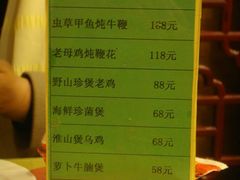 虫草甲鱼炖牛鞭 168元
老母鸡炖鞭花 118元
野山珍煲老鸡 88元
海鲜珍菌煲 68元
淮山煲乌鸡 68元
萝卜牛腩煲 58元